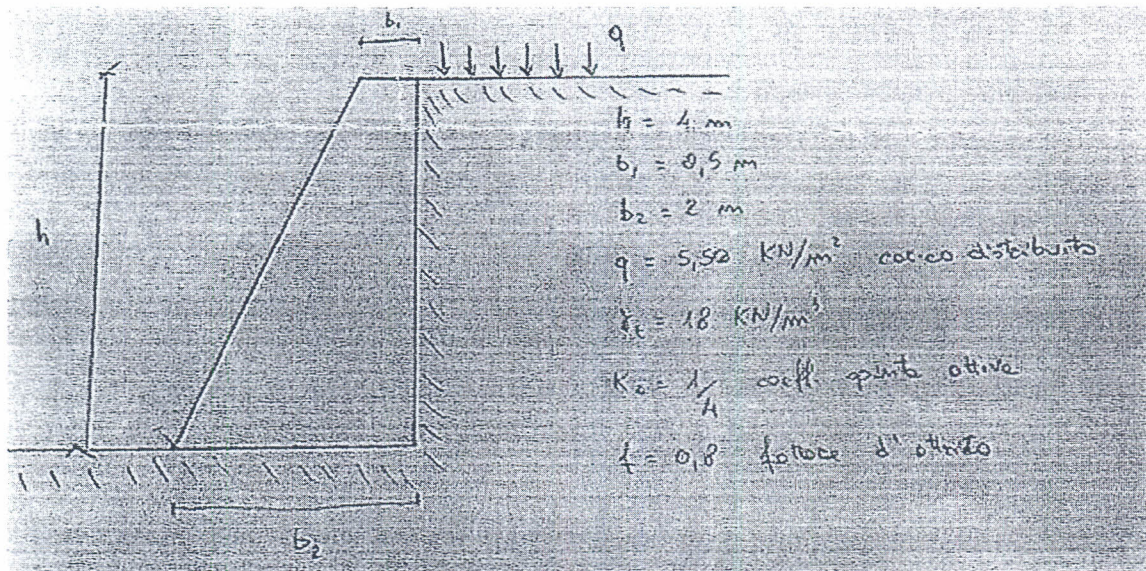 b₁
q
h
h = 4 m
b₁ = 0,5 m
b₂ = 2 m
q = 5,50 KN/m² carico distribuito
γt = 18 KN/m³
Ka = 1/4 coeff. spinta attiva
f = 0,8 fattore d'attrito
b₂